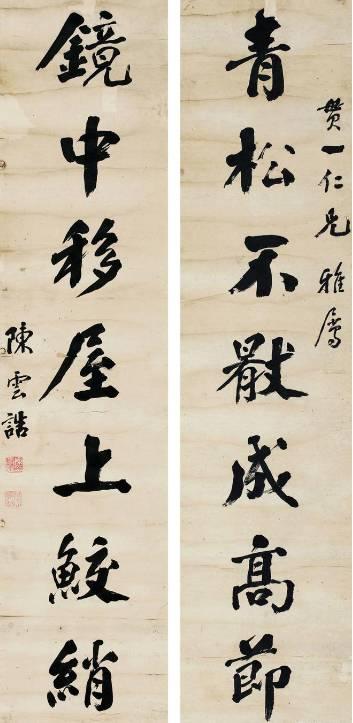 贊一仁兄雅屬
青松不成高節
鏡中移屋上鮫綃
陳雲誥